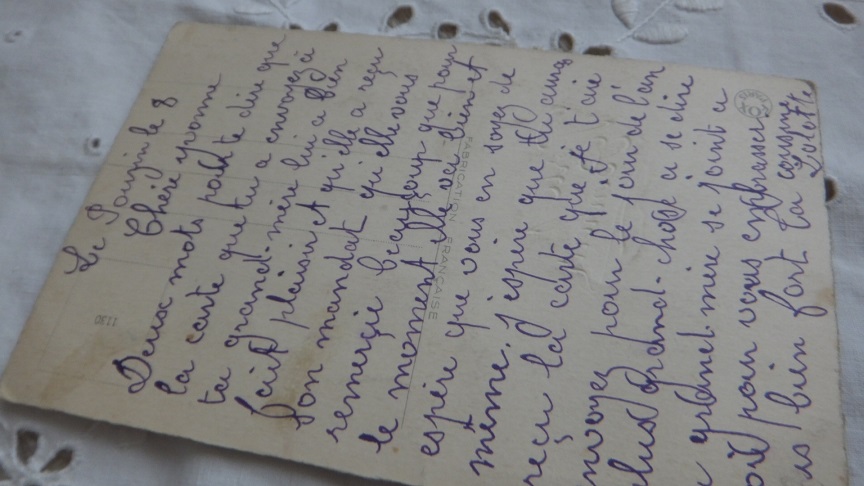 Le Pouzin le 8
Chère yvonne
Deux mots pour te dire que
la carte que tu a envoyez à
ta grand-mère lui a bien
fait plaisir et qu'elle a reçu
son mandat qu'elle vous
remerçie beaucoup que pour
le moment elle va bien et
espère que vous en soyez de
même. J'espère que tu auras
reçu la carte que je t'aie
nvoyez pour le jour de l'an
plus grand-chose a se dire
grand-mère se joint a
pour vous embrasser
bien fort ta cousine
FABRICATION FRANÇAISE
1130